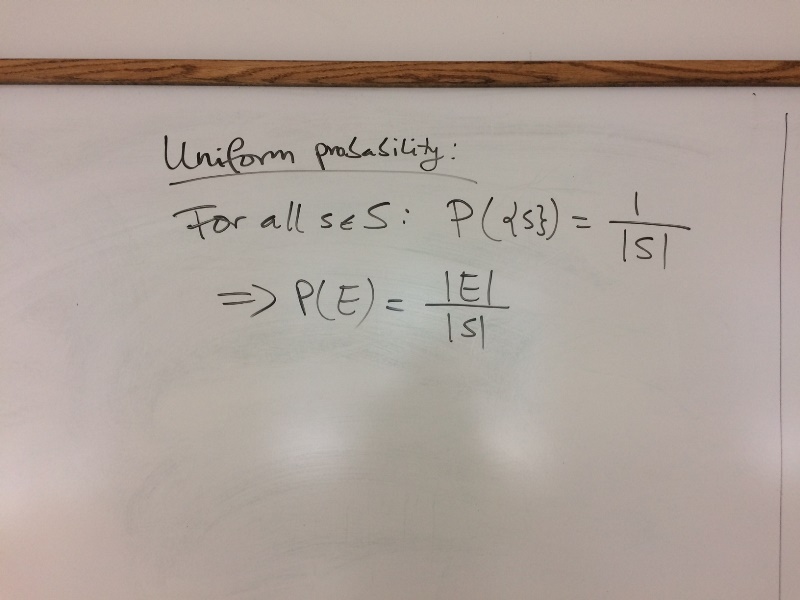 Uniform probability:
For all s∈S: P({s}) = 1/|S|
=> P(E) = |E|/|S|